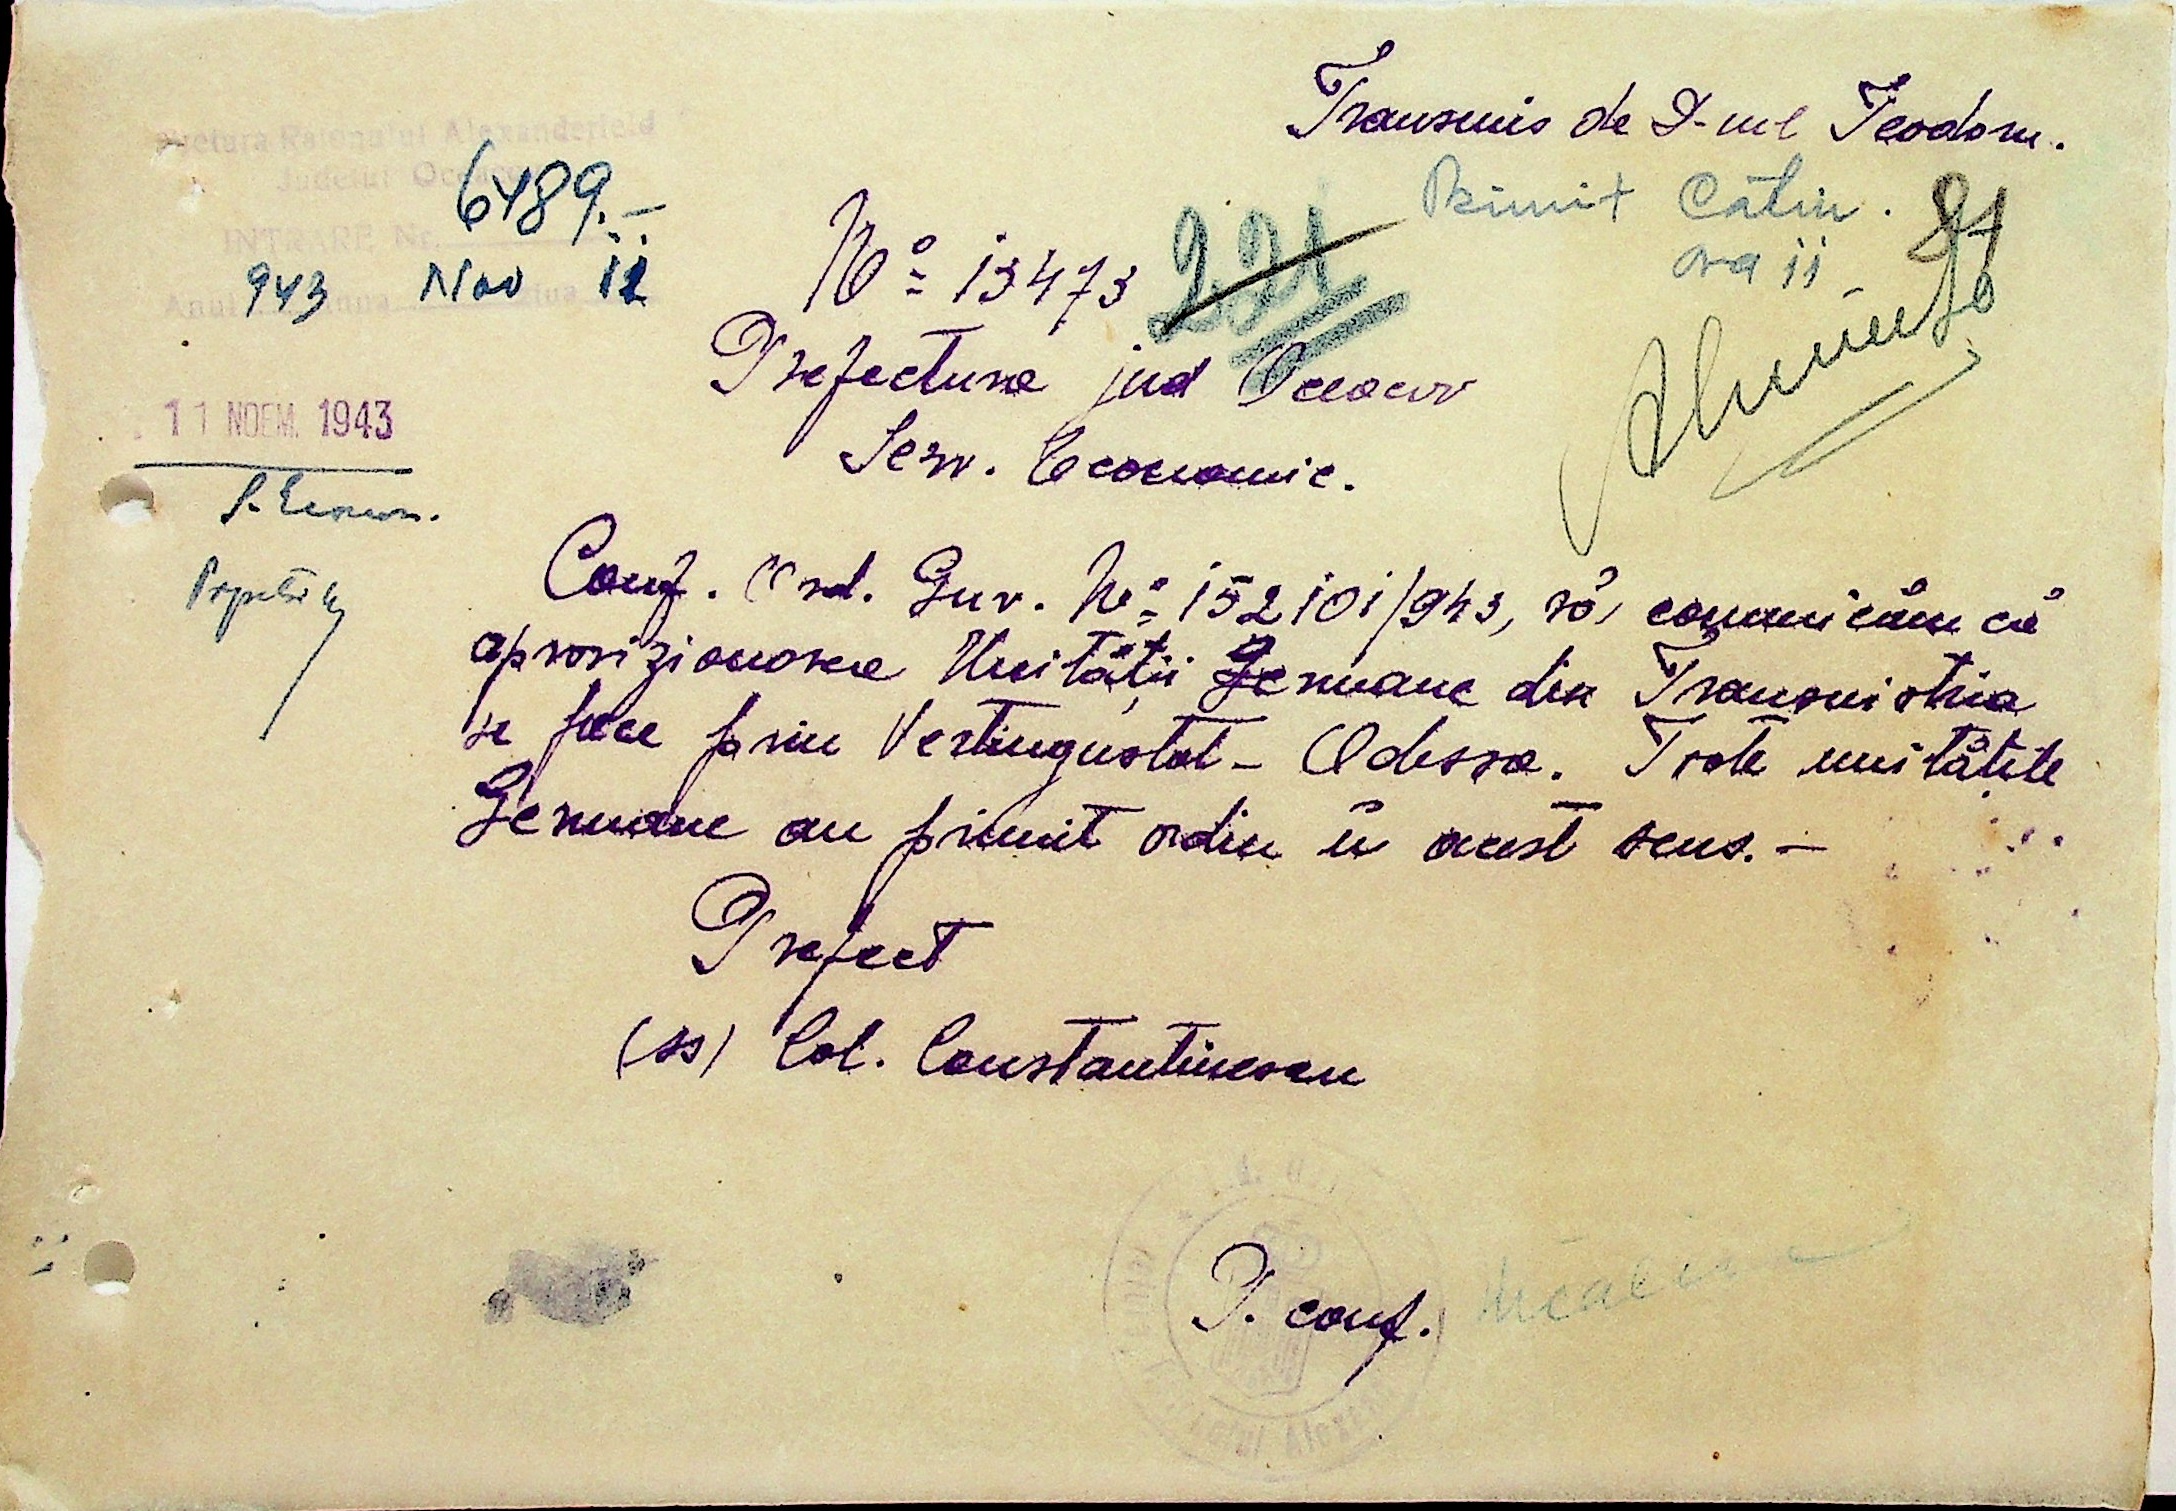 Transmis de D-nul Teodoru.
Primit Cătin.
ora 11
Pretura Raionului Alexanderfeld
Judetul Oceacov
INTRARE Nr. 6489.-
Anul 943 Luna Nov Ziua 12
No 13473
221
Prefectura jud Oceacov
Serv. Economic.
11 NOEM. 1943
S. Econom.
Conf. Ord. Guv. No 152101/943, vă comunicăm că
aprovizionarea Unității Germane din Transnistria
se face prin Vertingustal - Odessa. Toate unitățile
Germane au primit ordin în acest sens. -
Prefect
(ss) Col. Constantinescu
P. conf.